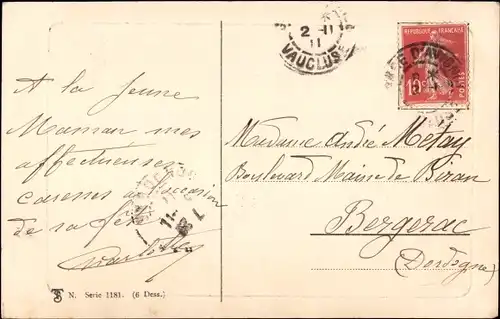 A la jeune
Maman mes
affectueuses
caresses à l'occasion
de sa fête
2-11
11
VAUCLUSE
REPUBLIQUE FRANÇAISE
10c
POSTES
Madame André Metay
Boulevard Maine de Biran
Bergerac
(Dordogne)
N. Serie 1181. (6 Dess.)